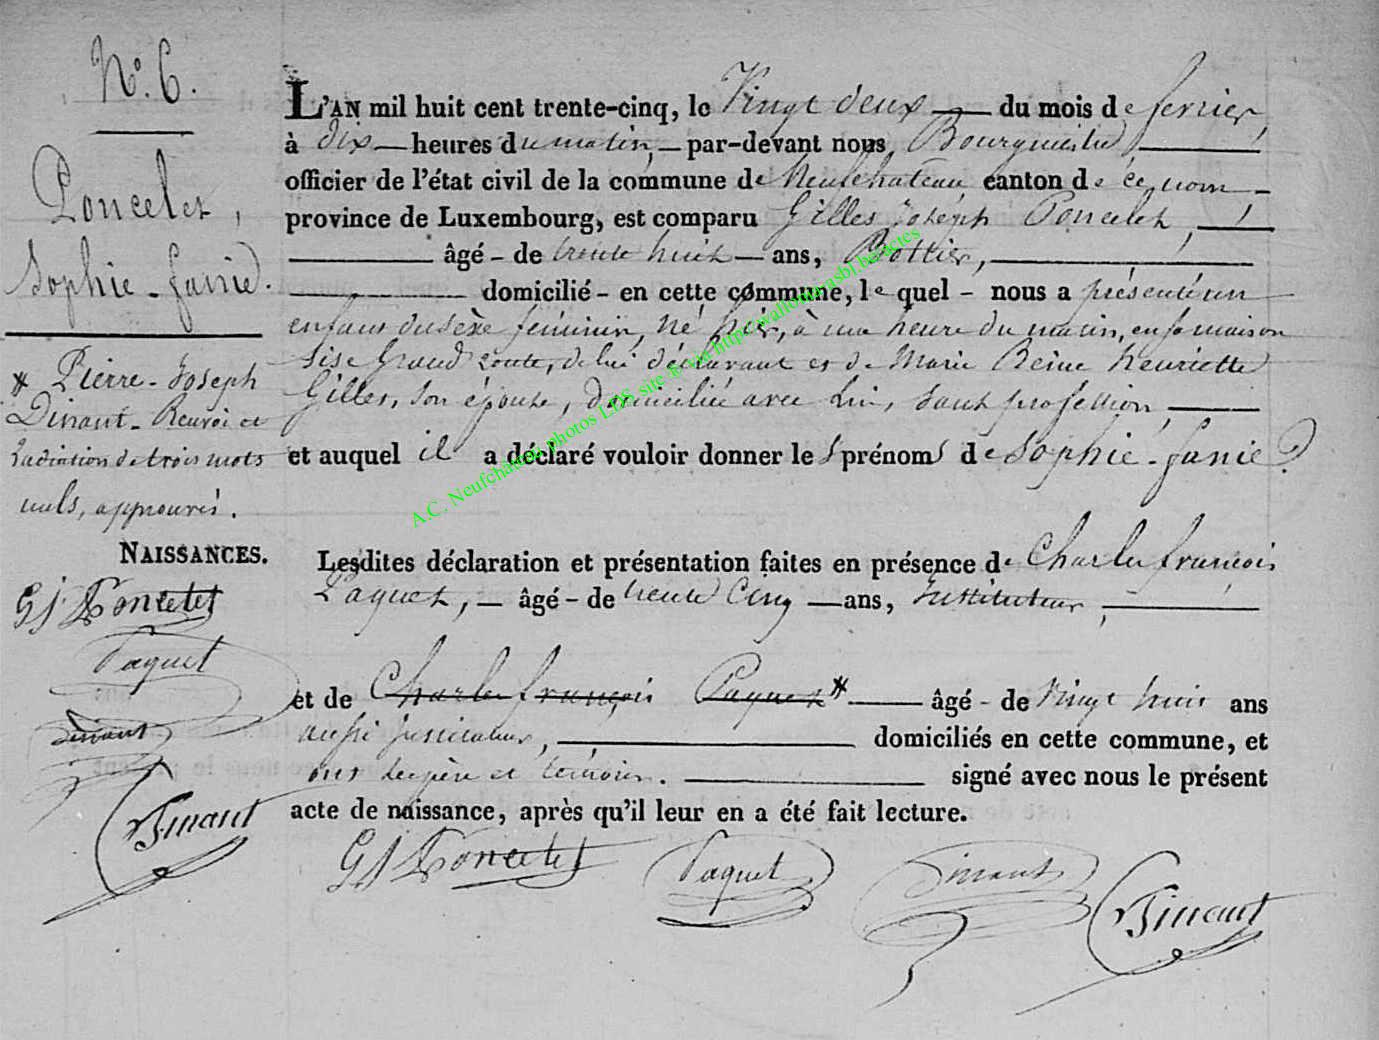 N.° 6.
Poncelet,
Sophie-fanie.
* Pierre-Joseph
Dinant - Renvoi et
radiation de trois mots
nuls, approuvés.
NAISSANCES.
GJ Poncelet
Paquet
Dinant
Dinant
L'AN mil huit cent trente-cinq, le Vingt deux du mois de fevrier,
à dix heures du matin, par-devant nous Bourgmestre
officier de l'état civil de la commune de Neufchateau canton de ce nom
province de Luxembourg, est comparu Gilles Joseph Poncelet,
âgé de trente huit ans, Bottier,
domicilié en cette commune, le quel nous a présenté un
enfant du sèxe féminin, né hier, à une heure du matin, en sa maison
sise Grand route, de lui déclarant et de Marie Reine henriette
Gilles, son épouse, domiciliée avec lui, sans profession,
et auquel il a déclaré vouloir donner les prénoms de Sophie-fanie.
Lesdites déclaration et présentation faites en présence de Charles françois
Paquet, âgé de trente Cinq ans, Instituteur,
et de Charles françois Paquet * âgé de Vingt huit ans
aussi
domiciliés en cette commune, et
ont le père et témoins. signé avec nous le présent
acte de naissance, après qu'il leur en a été fait lecture.
GJ Poncelet Paquet Dinant Dinant
A.C. Neufchateau photos LDS site © via http://wallonia.asbl.be/actes